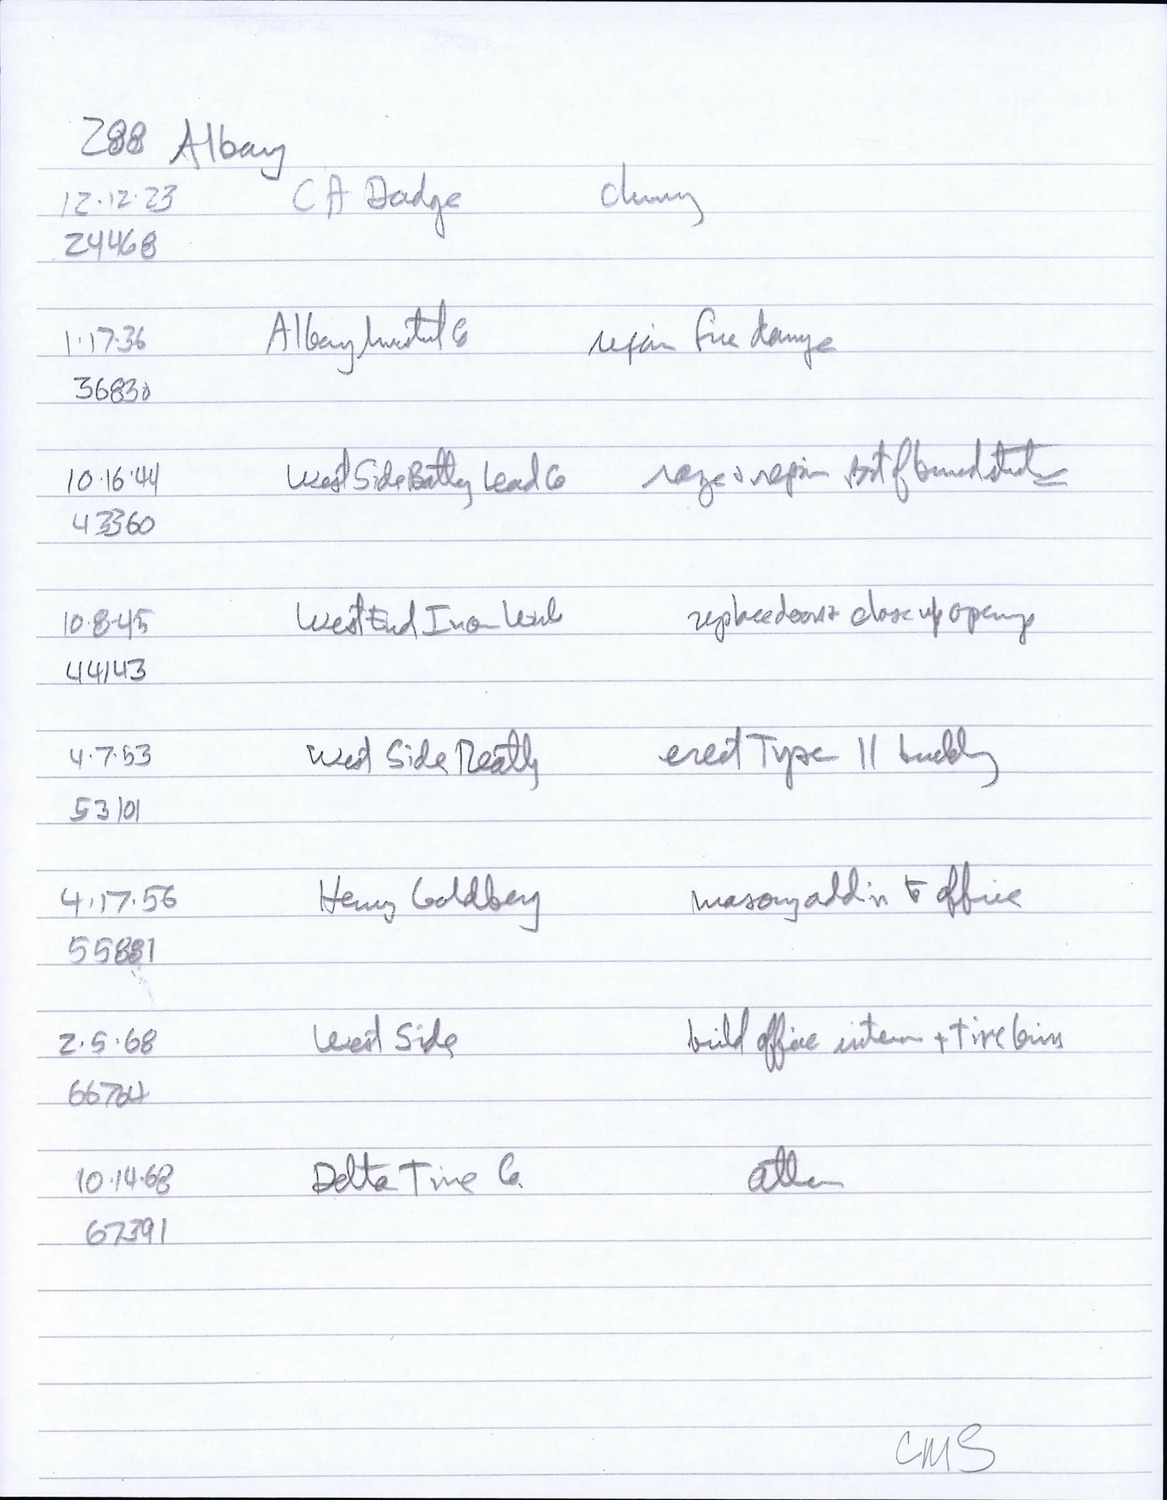 288 Albany
12.12.23 CA Dodge chimney
24468
1.17.36 Albany Co repair fire damage
36830
10.16.44 West Side Battery Lead Co raze & repair part of burned structure
43360
10.8.45 West End Iron Works replace doors & close up openings
44143
4.7.53 West Side Realty erect Type II building
53101
4.17.56 Henry Goldberg masonry add'n to office
55881
2.5.68 West Side build office interior + tire bins
66704
10.14.68 Delta Tire Co.
67391
CMS